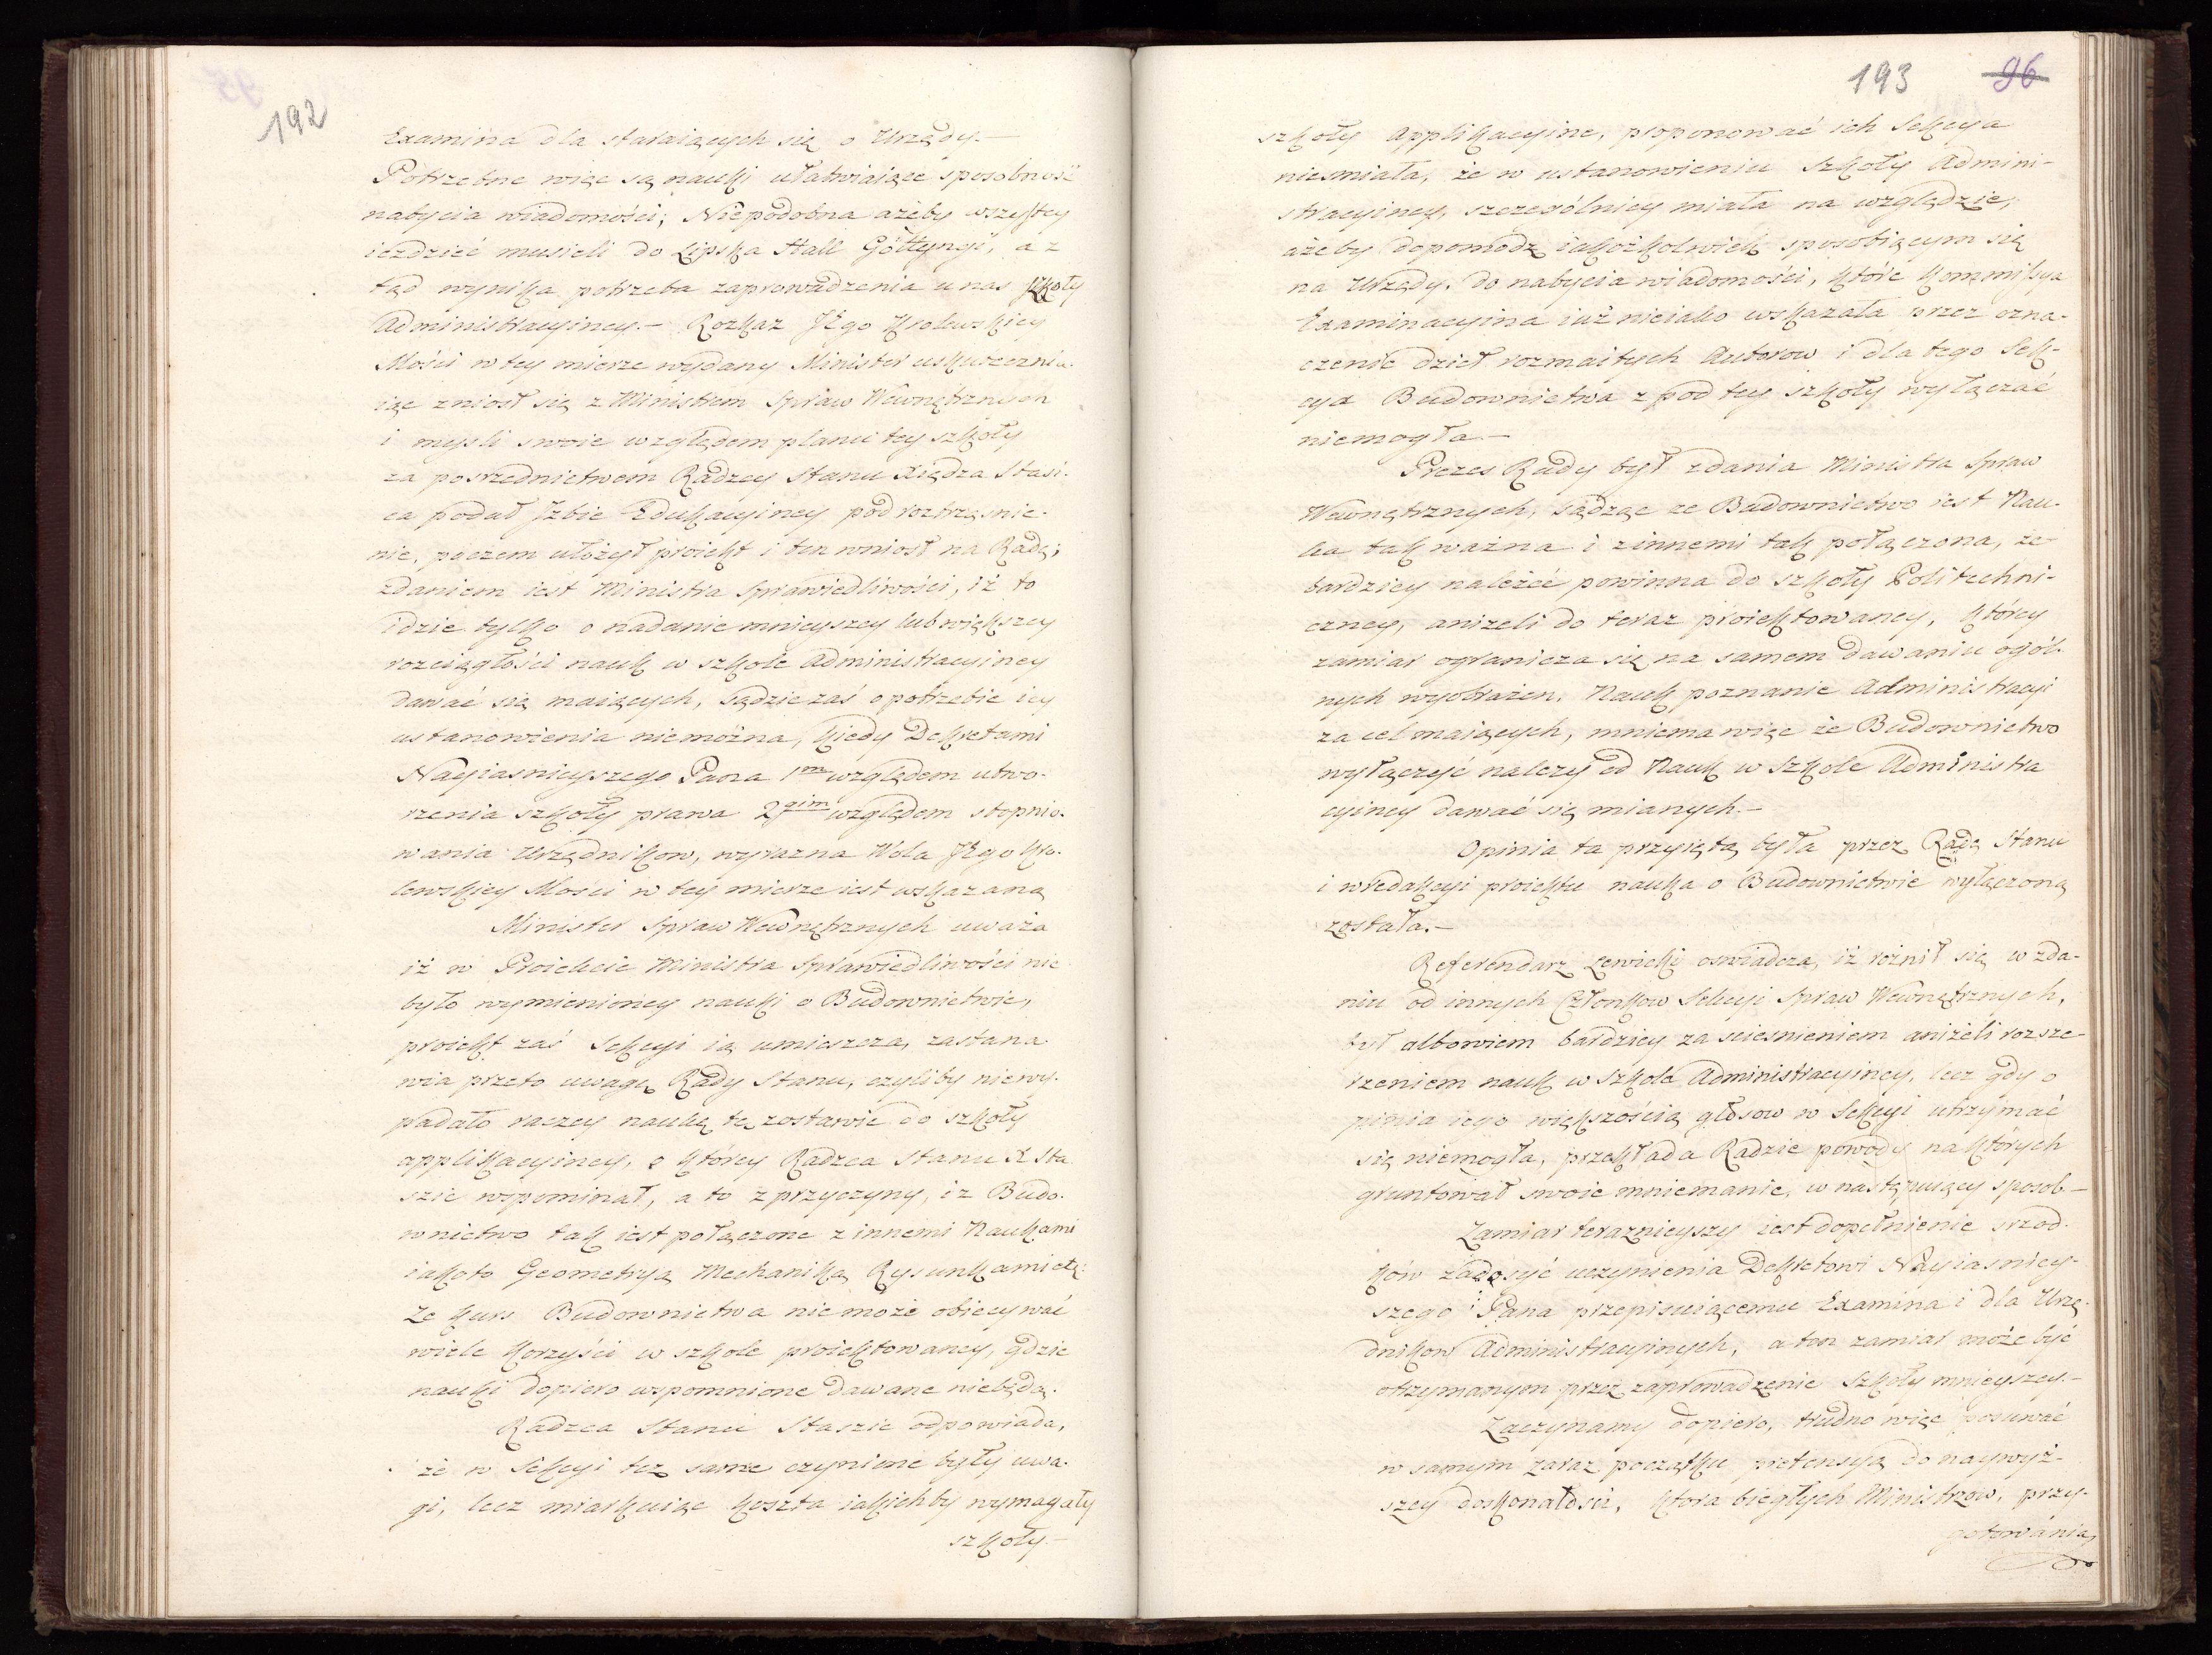 192
Examina dla staraiących się o Urzędy.—
Potrzebne więc są nauki ułatwiaiące sposobność
nabycia wiadomości; Niepodobna ażeby wszystcy
ieździć musieli do Lipska Hall Göttyngi, a z
tąd wynika potrzeba zaprowadzenia u nas szkoły
Administracyiney.— Rozkaz JKgo Krolewskiey
Mości w tey mierze wydany Minister uskuteczniа-
iąc zniosł się z Ministrem Spraw Wewnętrznych
i mysli swoie względem planu tey szkoły
za posrzednictwem Radzcy Stanu Xiędza Stasi-
ca podał Izbie Edukacyiney pod roztrząsnie-
nie, poczem ułożył proiekt i ten wniosł na Radę;
zdaniem iest Ministra Sprawiedliwości, iż to
idzie tylko o nadanie mnieyszey lub większey
rozciągłości nauk w szkole Administracyiney
dawać się maiących, sądzić zaś o potrzebie iey
ustanowienia niemożna, kiedy Dekretami
Nayiasnieyszego Pana 1m względem utwo-
rzenia szkoły prawa 2gim względem stopnio-
wania Urzędnikow, wyrazna Wola JKgo Kro-
lewskiey Mości w tey mierze iest wskazaną
Minister Spraw Wewnętrznych uważa
iż w Proiekcie Ministra Sprawiedliwości nie
było wymienioney nauki o Budownictwie,
proiekt zaś Sekcyi ią umieszcza, zastana-
wia przeto uwagę Rady Stanu, czyliby niewy-
padało raczey naukę tę zostawić do szkoły
applikacyiney, o ktorey Radzca Stanu X Sta
szic wspominał, a to z przyczyny, iz Budo-
wnictwo tak iest połączone z innemi Naukami
iakoto Geometryą Mechaniką Rysunkami etc:
Ze Kurs Budownictwa nie może obiecywać
wiele korzyści w szkole proiektowaney, gdzie
nauki dopiero wspomnione dawane niebędą.
Radzca Stanu Staszic odpowiada,
że w Sekcyi też same czynione były uwa-
gi, lecz miarkuiąc koszta iakichby wymagały
szkoły—
193 96
szkoły applikacyine, proponować ich Sekcya
niesmiała, że w ustanowieniu szkoły Admini-
stracyiney, szczególniey miała na względzie,
ażeby dopomodz iakożkolwiek sposobiącym się
na Urzędy, do nabycia wiadomości, które Kommissya
Examinacyina iuż nieiako wskazała przez ozna-
czenie dzieł rozmaitych Autorow i dla tego Sek-
cya Budownictwa z pod tey szkoły wyłączać
niemogła.—
Prezes Rady był zdania Ministra Spraw
Wewnętrznych, sądząc ze Budownictwo iest Nau-
ka tak ważna i z innemi tak połączona, że
bardziey należeć powinna do szkoły Politechni-
czney, aniżeli do teraz proiektowaney, którey
zamiar ogranicza się na samem dawaniu ogól-
nych wyobrażen, Nauk poznanie Administracyi
za cel maiących, mniema więc że Budownictwo
wyłączyć nalezy od Nauk w Szkole Administra
cyiney dawać się mianych.—
Opinia ta przyiętą była przez Radę Stanu
i w redakcyi proiektu nauka o Budownictwie wyłączoną
została.—
Referendarz Lewicki oswiadcza, iż roźnił się w zda-
niu od innych Członkow Sekcyi Spraw Wewnętrznych,
był albowiem bardziey za sciesnieniem aniżeli rozsze-
rzeniem nauk w Szkole Administracyiney, lecz gdy o
pinia iego większością głosow w Sekcyi utrzymać
się niemogła, przekłada Radzie powody na których
gruntował swoie mniemanie, w następuiący sposob.—
Zamiar teraznieyszy iest dopełnienie srzod-
ków zadosyć uczynienia Dekretowi Nayiasniey-
szego Pana przepisuiącemu Examina i dla Urzę-
dnikow Administracyinych, a ten zamiar może być
otrzymanym przez zaprowadzenie szkoły mnieyszey.—
Zaczynamy dopiero, trudno więc posuwać
w samym zaraz początku pretensyą do naywyż-
szey doskonałosci, ktora biegłych Ministrzow, przy-
gotowania